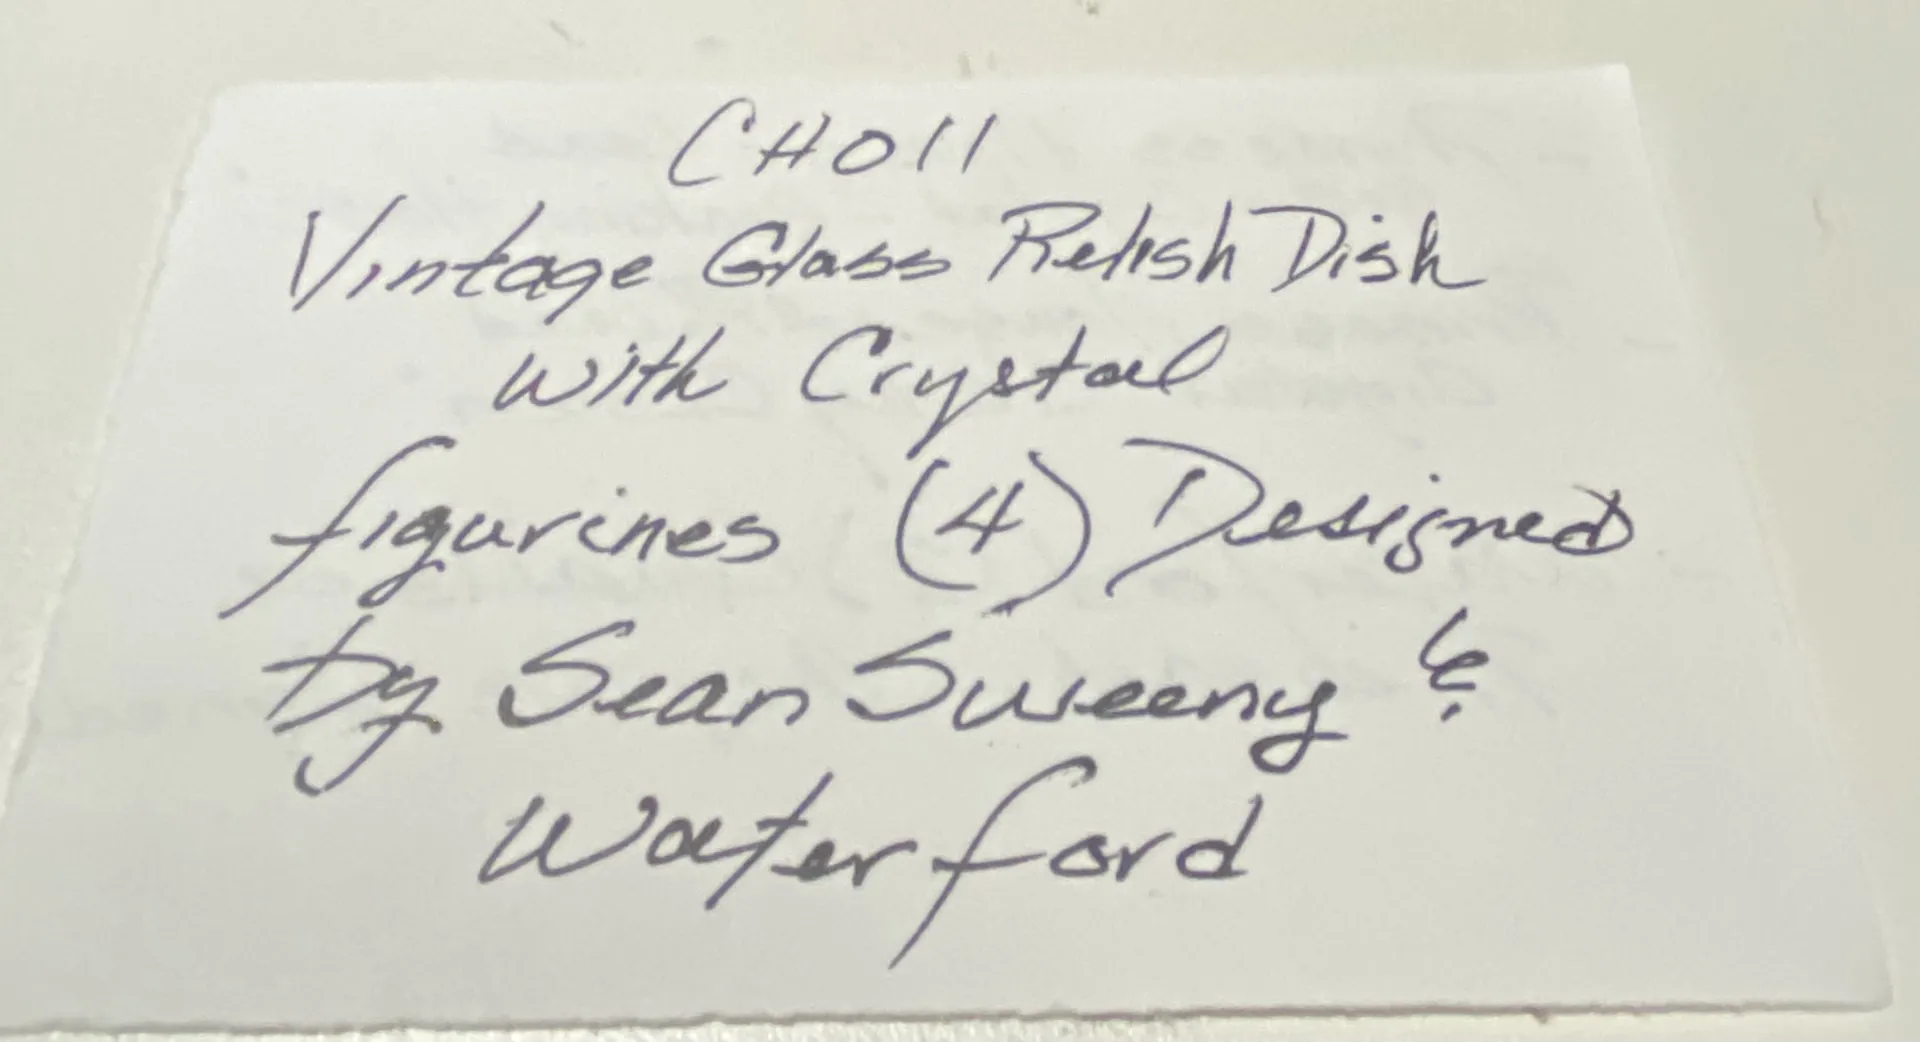 CH011
Vintage Glass Relish Dish
with Crystal
figurines (4) Designed
by Sean Sweeny &
Waterford